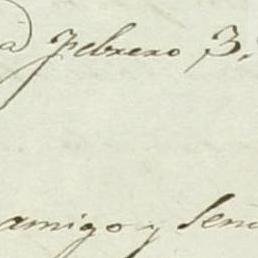 a Febrero 3.
amigo y Seño